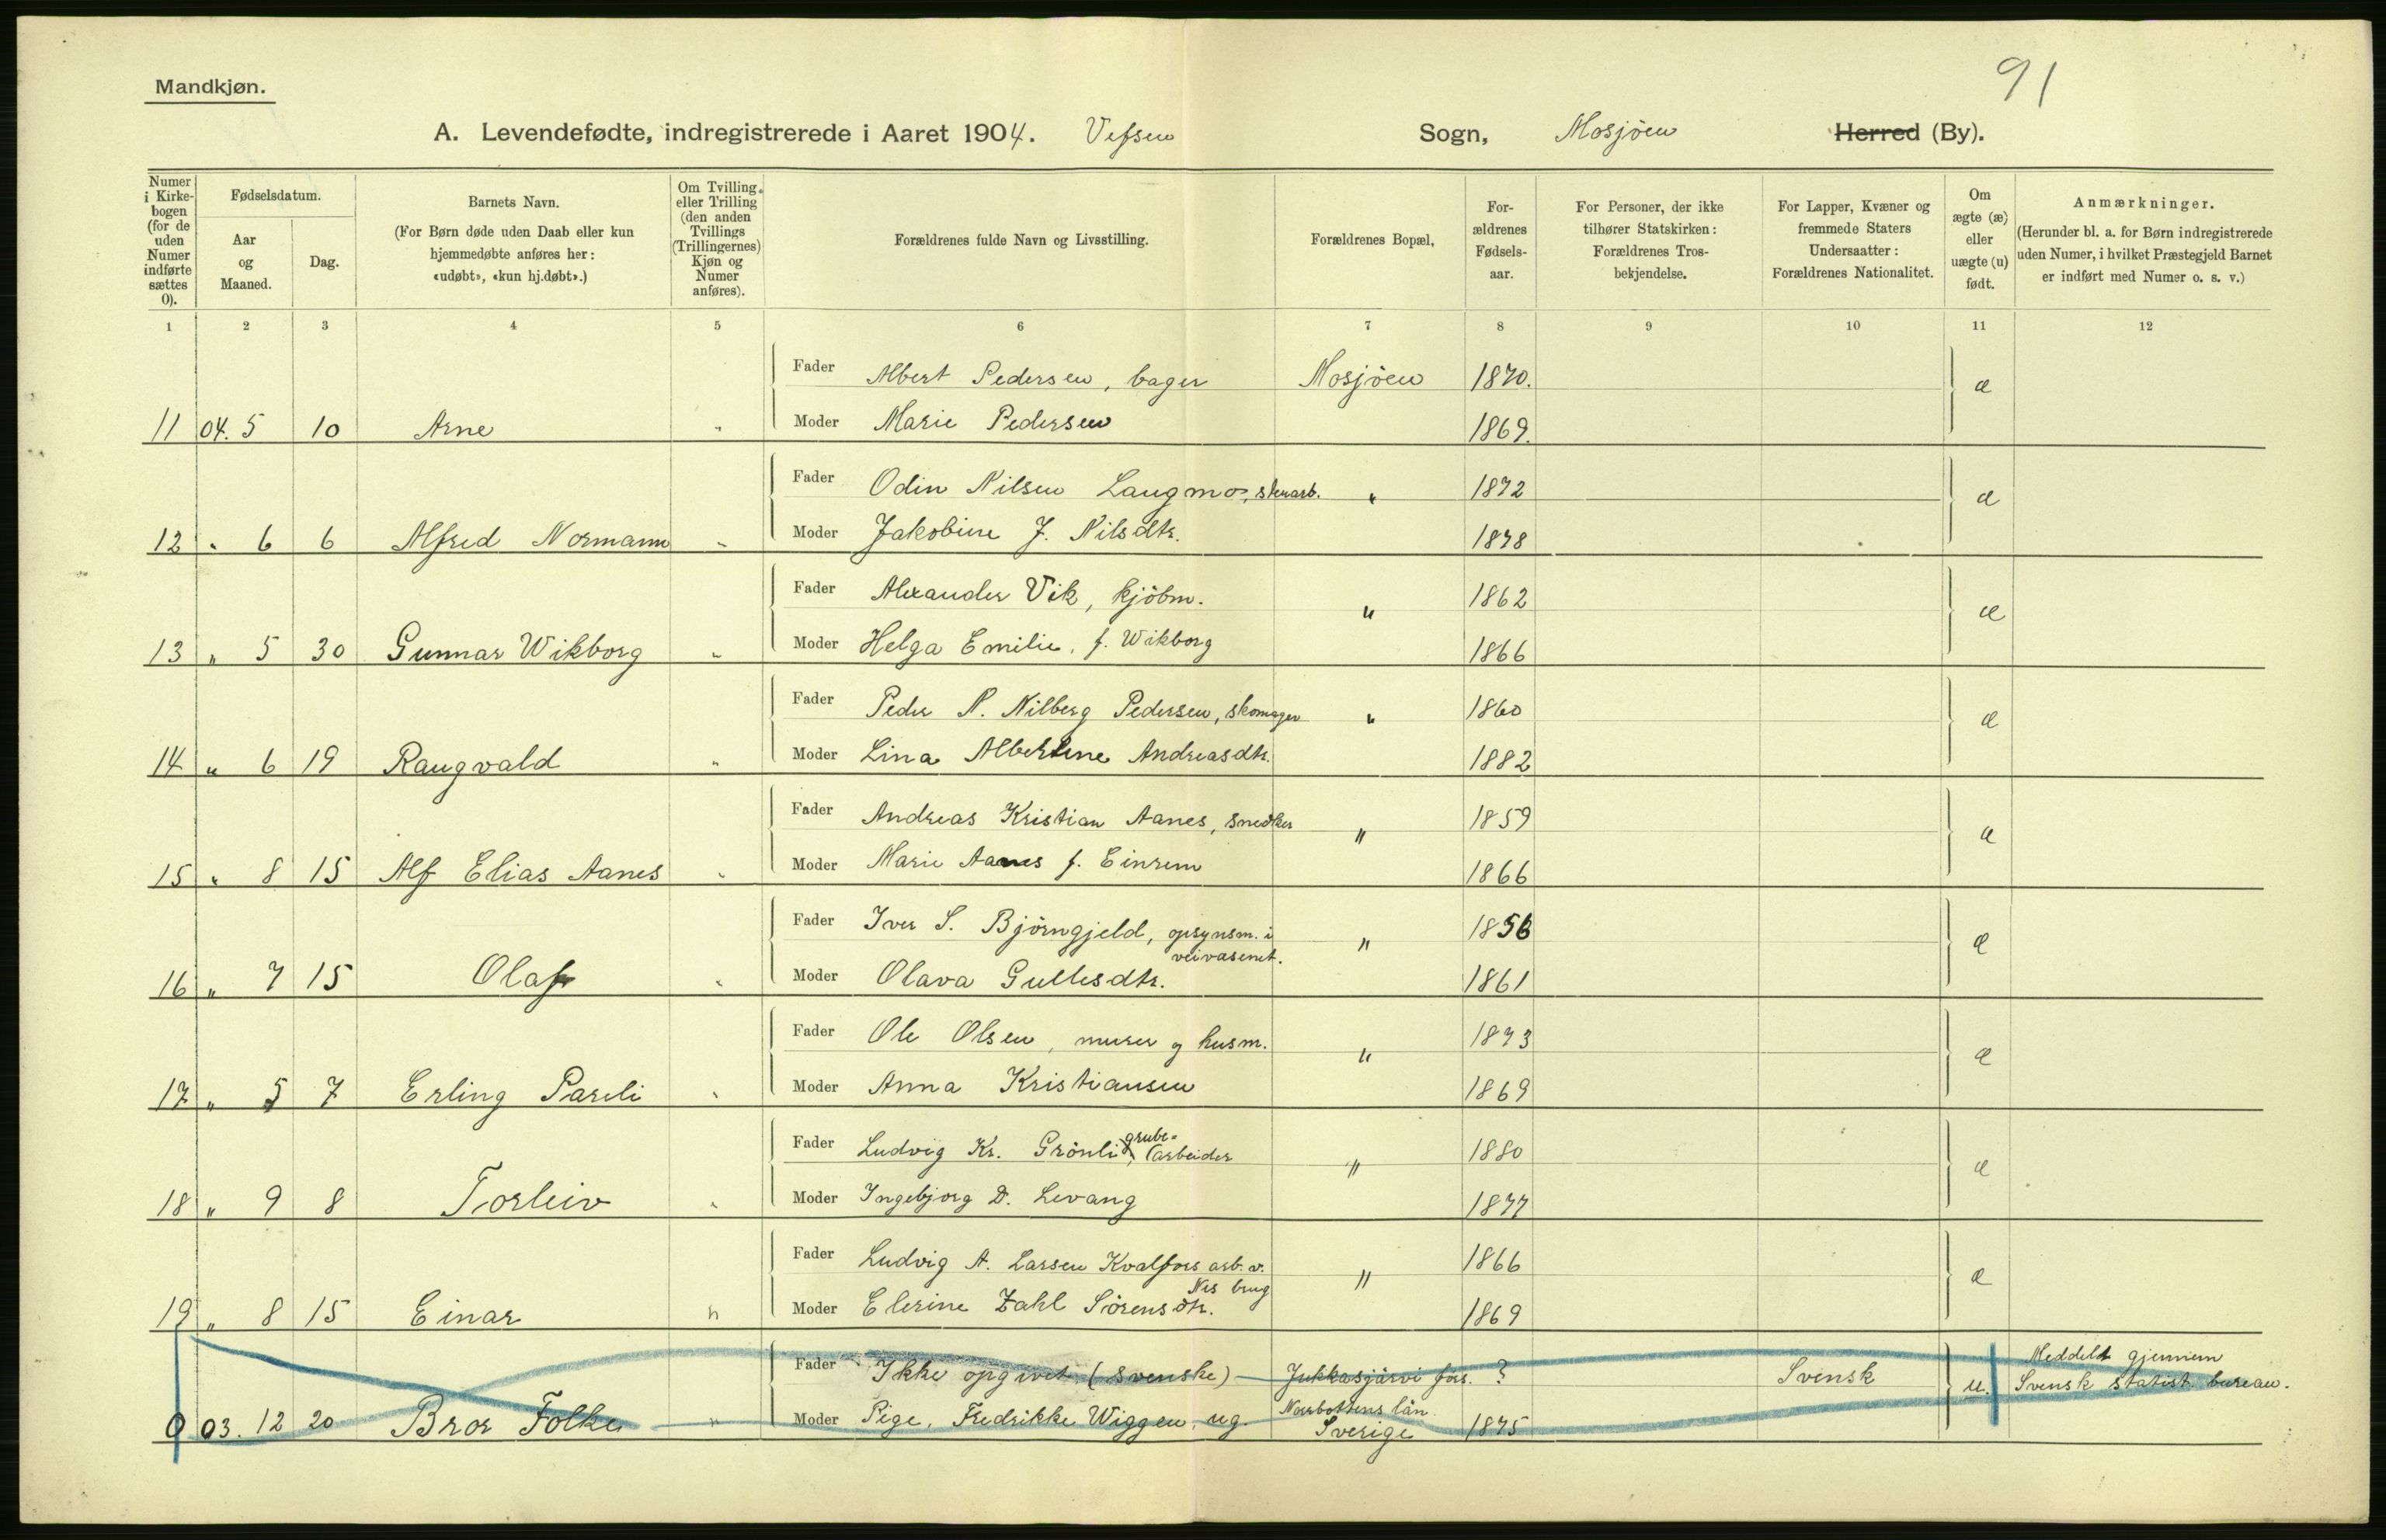 91
Mandkjøn.
A. Levendefødte, indregistrerede i Aaret 1904. Vefsen Sogn, Mosjöen Herred (By).
Numer i Kirkebogen (for de uden Numer indførte sættes 0).
Fødselsdatum.
Aar og Maaned.
Dag.
Barnets Navn.
(For Børn døde uden Daab eller kun hjemmedøbte anføres her: «udøbt», «kun hj.døbt».)
Om Tvilling eller Trilling (den anden Tvillings (Trillingernes) Kjøn og Numer anføres).
Forældrenes fulde Navn og Livsstilling.
Forældrenes Bopæl,
Forældrenes Fødselsaar.
For Personer, der ikke tilhører Statskirken: Forældrenes Trosbekjendelse.
For Lapper, Kvæner og fremmede Staters Undersaatter: Forældrenes Nationalitet.
Om ægte (æ) eller uægte (u) født.
Anmærkninger.
(Herunder bl. a. for Børn indregistrerede uden Numer, i hvilket Præstegjeld Barnet er indført med Numer o. s. v.)
1 2 3 4 5 6 7 8 9 10 11 12
Fader Albert Pedersen, bager Mosjöen 1870. æ
11 04. 5 10 Arne " Moder Marie Pedersen 1869.
Fader Odin Nilsen Langmo, skoarb. " 1872 æ
12 " 6 6 Alfred Normann " Moder Jakobine J. Nilsdtr. 1878
Fader Alexander Vik, kjöbm. " 1862 æ
13 " 5 30 Gunnar Wikborg " Moder Helga Emilie, f. Wikborg 1866
Fader Peder N. Nilberg Pedersen, skomager " 1860 æ
14 " 6 19 Raugvald " Moder Lina Albertine Andreasdtr. 1882
Fader Andreas Kristian Aanes, snedker " 1859 æ
15 " 8 15 Alf Elias Aanes " Moder Marie Aanes f. Einrem 1866
Fader Iver S. Björngjeld, opsynsm. i veivæsenet. " 1856 æ
16 " 7 15 Olaf " Moder Olava Gullesdtr. 1861
Fader Ole Olsen, murer og husm. " 1873 æ
17 " 5 7 Erling Pareli " Moder Anna Kristiansen 1869
Fader Ludvig Kr. Grönli, grubearbeider " 1880 æ
18 " 9 8 Torleiv " Moder Ingebjorg D. Levang 1877
Fader Ludvig A. Larsen Kvalfors arb. v. Nes brug " 1866 æ
19 " 8 15 Einar " Moder Elerine Zahl Sörensdtr. 1869
Fader Ikke opgivet (svenske) Jukkasjärvi förs. ? Svensk u. Meddelt gjennem Svensk statist. bureau.
0 03. 12 20 Bror Folke " Moder Pige, Fredrikke Wiggen, ug. Norrbottens län Sverige 1875